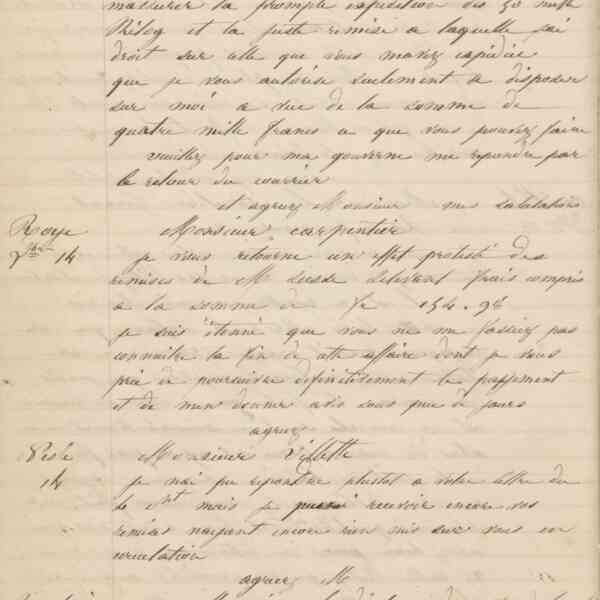 massurer la prompte expedition des 50 mille
Kilog et la juste remise a laquelle jai
droit sur celle que vous mavez expidiée
que je vous autorise seulement a disposer
sur moi a vue de la somme de
quatre mille francs a que vous pouvez faire
veuillez pour ma gouverne me repondre par
le retour du courrier
et agreez Monsieur mes salutations
Roye Monsieur carpentier
14 je vous retourne un effet protesté des
remises de M delivrant frais compris
a la somme de fr 154.98
je suis étonné que vous ne me fassiez pas
connaitre la fin de cette affaire dont je vous
prie de poursuivre definitivement le payement
et de men donner avis sous peu de jours
agreez
Monsieur Villette
14 je nai pu repondre plustot a votre lettre du
mais je recevoir encore vos
remises nayant encore rien mis sur vous en
circulation
agreez M